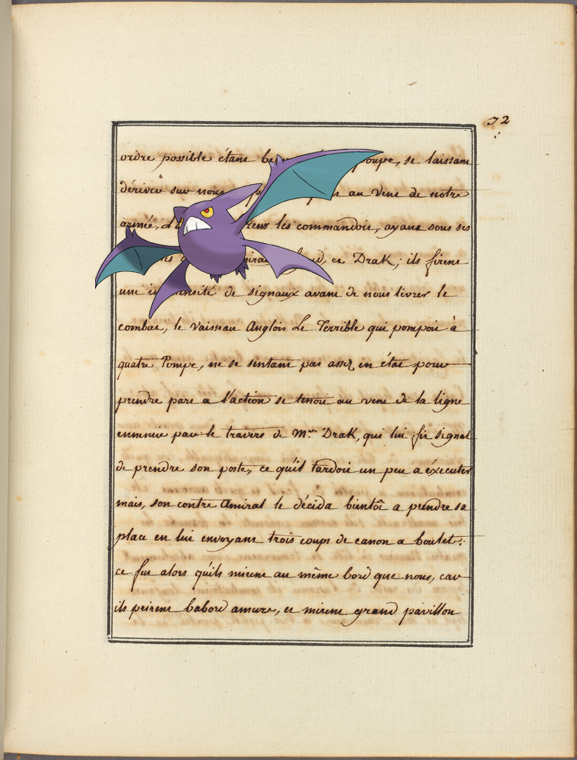 72
ordre possible étant oupe, se laissant
dérivée sur nous au vent de notre
armée, les commandoit, ayant sous ses
et Drak; ils firent
une de signaux avant de nous livrer le
combat, le vaisseau Anglois Le Terrible qui pompoit à
quatre Pompe, ne se sentant pas assez en état pour
prendre part a l'action se tenoit au vent de la ligne
ennemie par le travers de Mr. Drak, qui lui fit signal
de prendre son poste, ce qu'il tardoit un peu a éxecuter
mais, son contre Amiral le décida bientôt a prendre sa
place en lui envoyant trois coups de canon a boulet:
ce fut alors qu'ils mirent au même bord que nous, car
ils prirent babord amure, et mirent grand pavillon